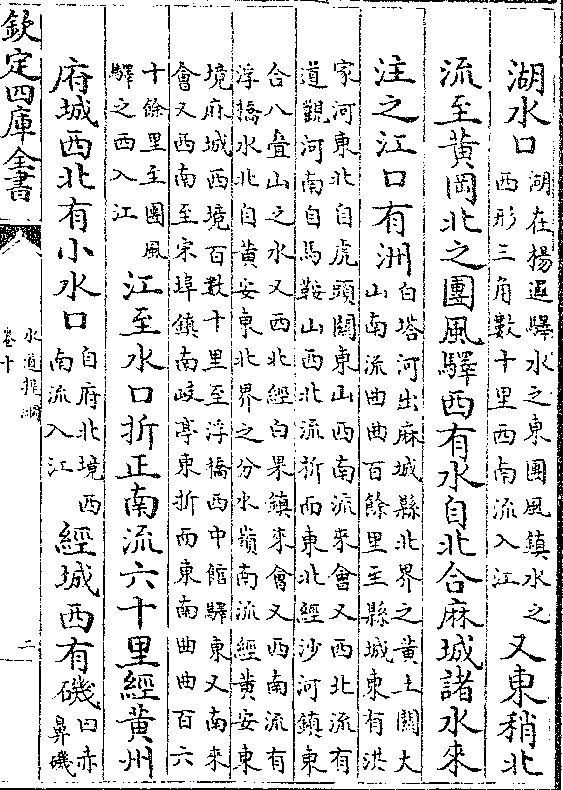 湖水口
湖在揚邏驛水之東團風鎮水之
西形三角數十里西南流入江
又東稍北
流至黃岡北之團風驛西有水自北合麻城諸水來
注之江口有洲
白塔河出麻城縣北界之黃土關大
山南流曲曲百餘里至縣城東有洪
家河東北自虎頭關東山西南流來會又西北流有
道觀河南自馬鞍山西北流折而東北經沙河鎮東
合八疊山之水又西北經白果鎮來會又西南流有
浮橋水北自黃安東北界之分水嶺南流經黃安東
境麻城西境百數十里至浮橋西中館驛東又南來
會又西南至宋埠鎮南岐亭東折而東南曲曲百六
十餘里至團風
驛之西入江
江至水口折正南流六十里經黃州
府城西北有小水口
自府北境西
南流入江
經城西有磯
曰赤
鼻磯
欽定四庫全書
水道提綱
卷十
二